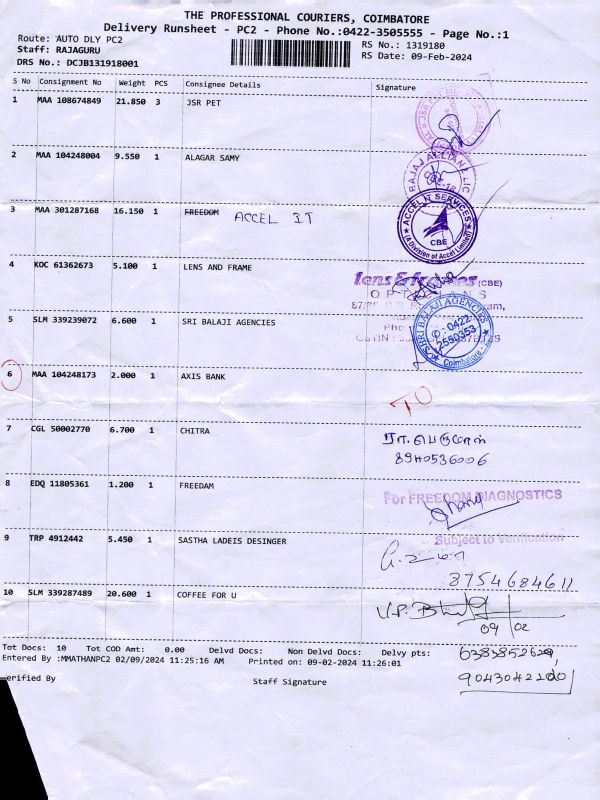 THE PROFESSIONAL COURIERS, COIMBATORE
Delivery Runsheet - PC2 - Phone No.:0422-3505555 - Page No.:1
Route: AUTO DLY PC2
RS No.: 1319180
Staff: RAJAGURU
RS Date: 09-Feb-2024
DRS No.: DCJB131918001
S No Consignment No Weight PCS Consignee Details Signature
1 MAA 108674849 21.850 3 JSR PET
2 MAA 104248004 9.550 1 ALAGAR SAMY
BAJAJ ALLIANZ LIC
3 MAA 301287168 16.150 1 FREEDOM ACCEL IT
ACCEL IT SERVICES
CBE
(A Division of Accel Limited)
4 KOC 61362673 5.100 1 LENS AND FRAME
lens & frames (CBE)
5 SLM 339239072 6.600 1 SRI BALAJI AGENCIES
SHRI BALAJI AGENCIES
0422
2550353
Coimbatore
6 MAA 104248173 2.000 1 AXIS BANK
7 CGL 50002770 6.700 1 CHITRA
8940536006
8 EDQ 11805361 1.200 1 FREEDAM
For FREEDOM DIAGNOSTICS
Subject to Verification
9 TRP 4912442 5.450 1 SASTHA LADEIS DESINGER
8754684611
10 SLM 339287489 20.600 1 COFFEE FOR U
09/02
Tot Docs: 10 Tot COD Amt: 0.00 Delvd Docs: Non Delvd Docs: Delvy pts:
Entered By :MMATHANPC2 02/09/2024 11:25:16 AM Printed on: 09-02-2024 11:26:01
erified By Staff Signature